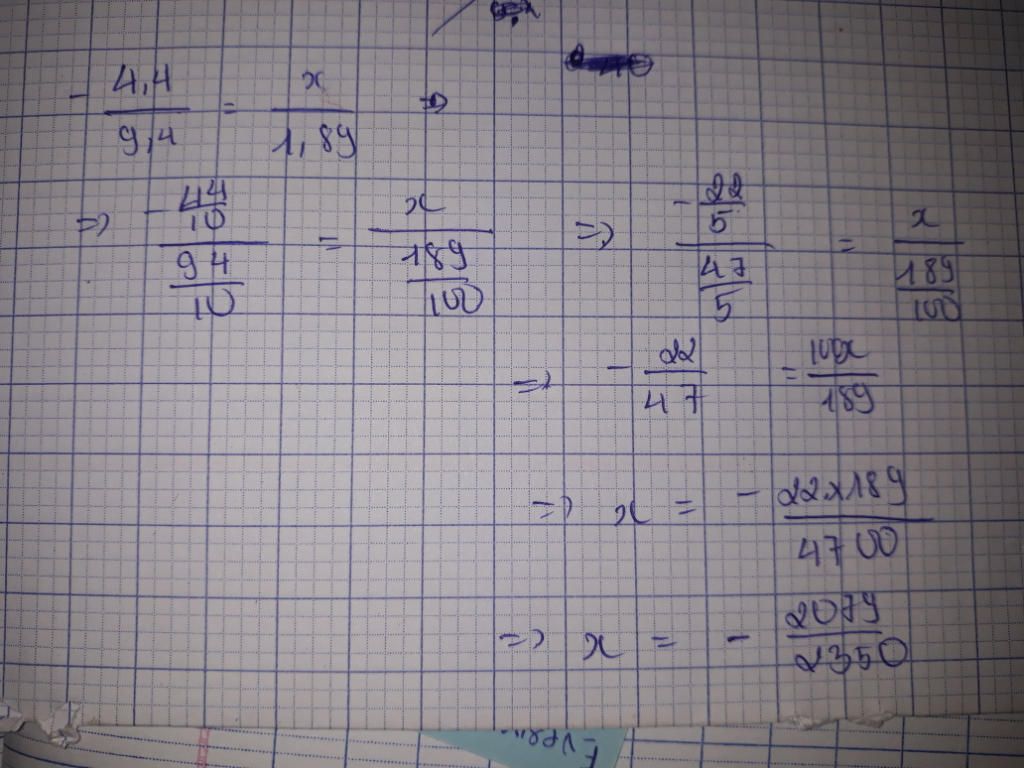 - 4,4/9,4 = x/1,89 ⇒
⇒ -(44/10)/(94/10) = x/(189/100) ⇒ (-22/5)/(47/5) = x/(189/100)
⇒ - 22/47 = 100x/189
⇒ x = - 22x189/4700
⇒ x = - 2079/2350